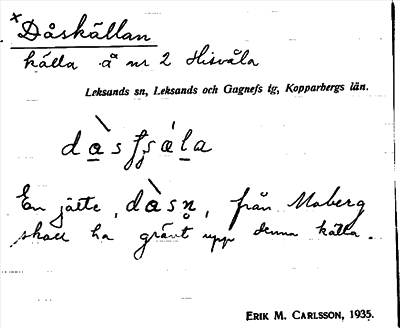 ×Dåskällan
källa å nr 2 Hisvåla
Leksands sn, Leksands och Gagnefs tg, Kopparbergs län.
En jätte, dàsn̥, från Moberg
skall ha grävt upp denna källa.
ERIK M. CARLSSON, 1935.